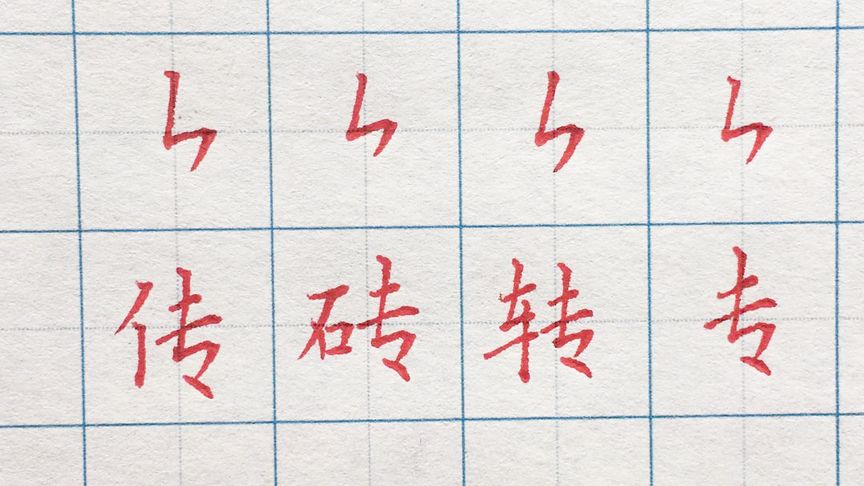 ㄣ ㄣ ㄣ ㄣ
传 砖 转 专